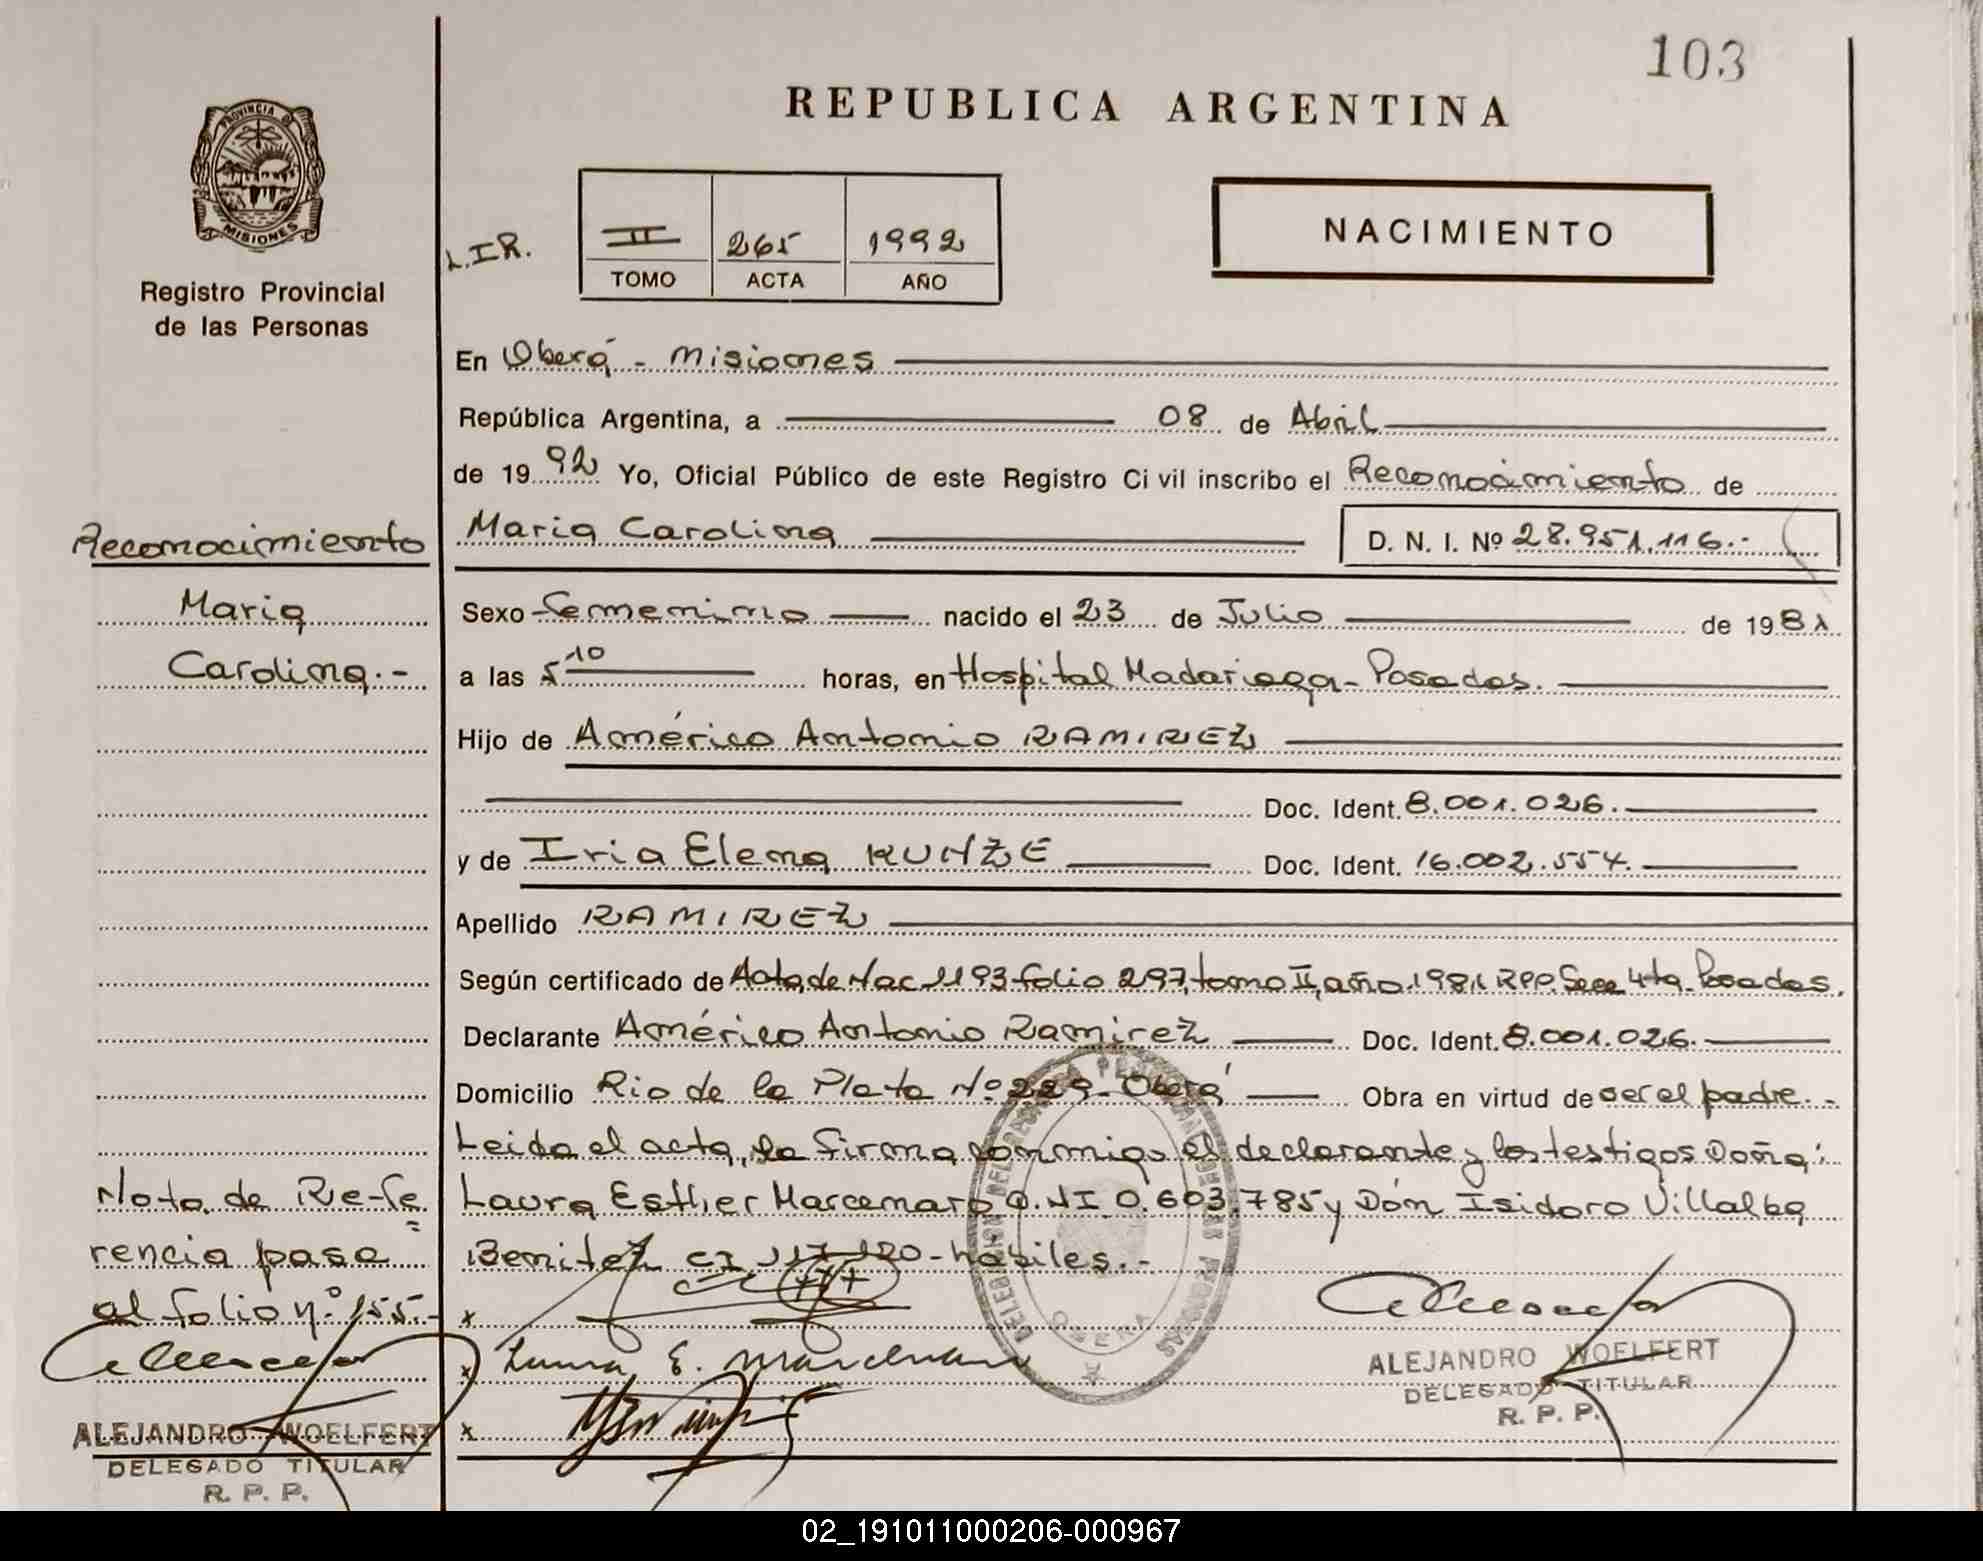 103
REPUBLICA ARGENTINA
PROVINCIA DE
MISIONES
Registro Provincial
de las Personas
L.I.R.
II 265 1992
TOMO ACTA AÑO
NACIMIENTO
En Oberá - Misiones
República Argentina, a 08 de Abril
de 1992 Yo, Oficial Público de este Registro Civil inscribo el Reconocimiento de
Maria Carolina D. N. I. Nº 28.951.116.-
Reconocimiento
Maria
Carolina.-
Sexo femenino nacido el 23 de Julio de 1981
a las 5 10 horas, en Hospital Madariaga - Posadas.
Hijo de Américo Antonio RAMIREZ
Doc. Ident. 8.001.026.
y de Iria Elena KUNZE Doc. Ident. 16.002.554.
Apellido RAMIREZ
Según certificado de Acta de Nac 1193 folio 297, tomo II, año 1981 RPP. Secc 4ta Posadas.
Declarante Américo Antonio Ramirez Doc. Ident. 8.001.026.
Domicilio Rio de la Plata Nº 229 - Oberá Obra en virtud de ser el padre.-
Leida el acta, la firma conmigo el declarante y los testigos Doña:
Laura Esther Marcenaro D.NI 0.603.785 y Don Isidoro Villalba
Benitez CI 117.120 - habiles.-
Nota de Refe
rencia pasa
al folio nº 155.-
x
x Laura E.
x
OBERA
ALEJANDRO WOELFERT
DELEGADO TITULAR
R. P. P.
ALEJANDRO WOELFERT
DELEGADO TITULAR
R. P. P.
02_191011000206-000967